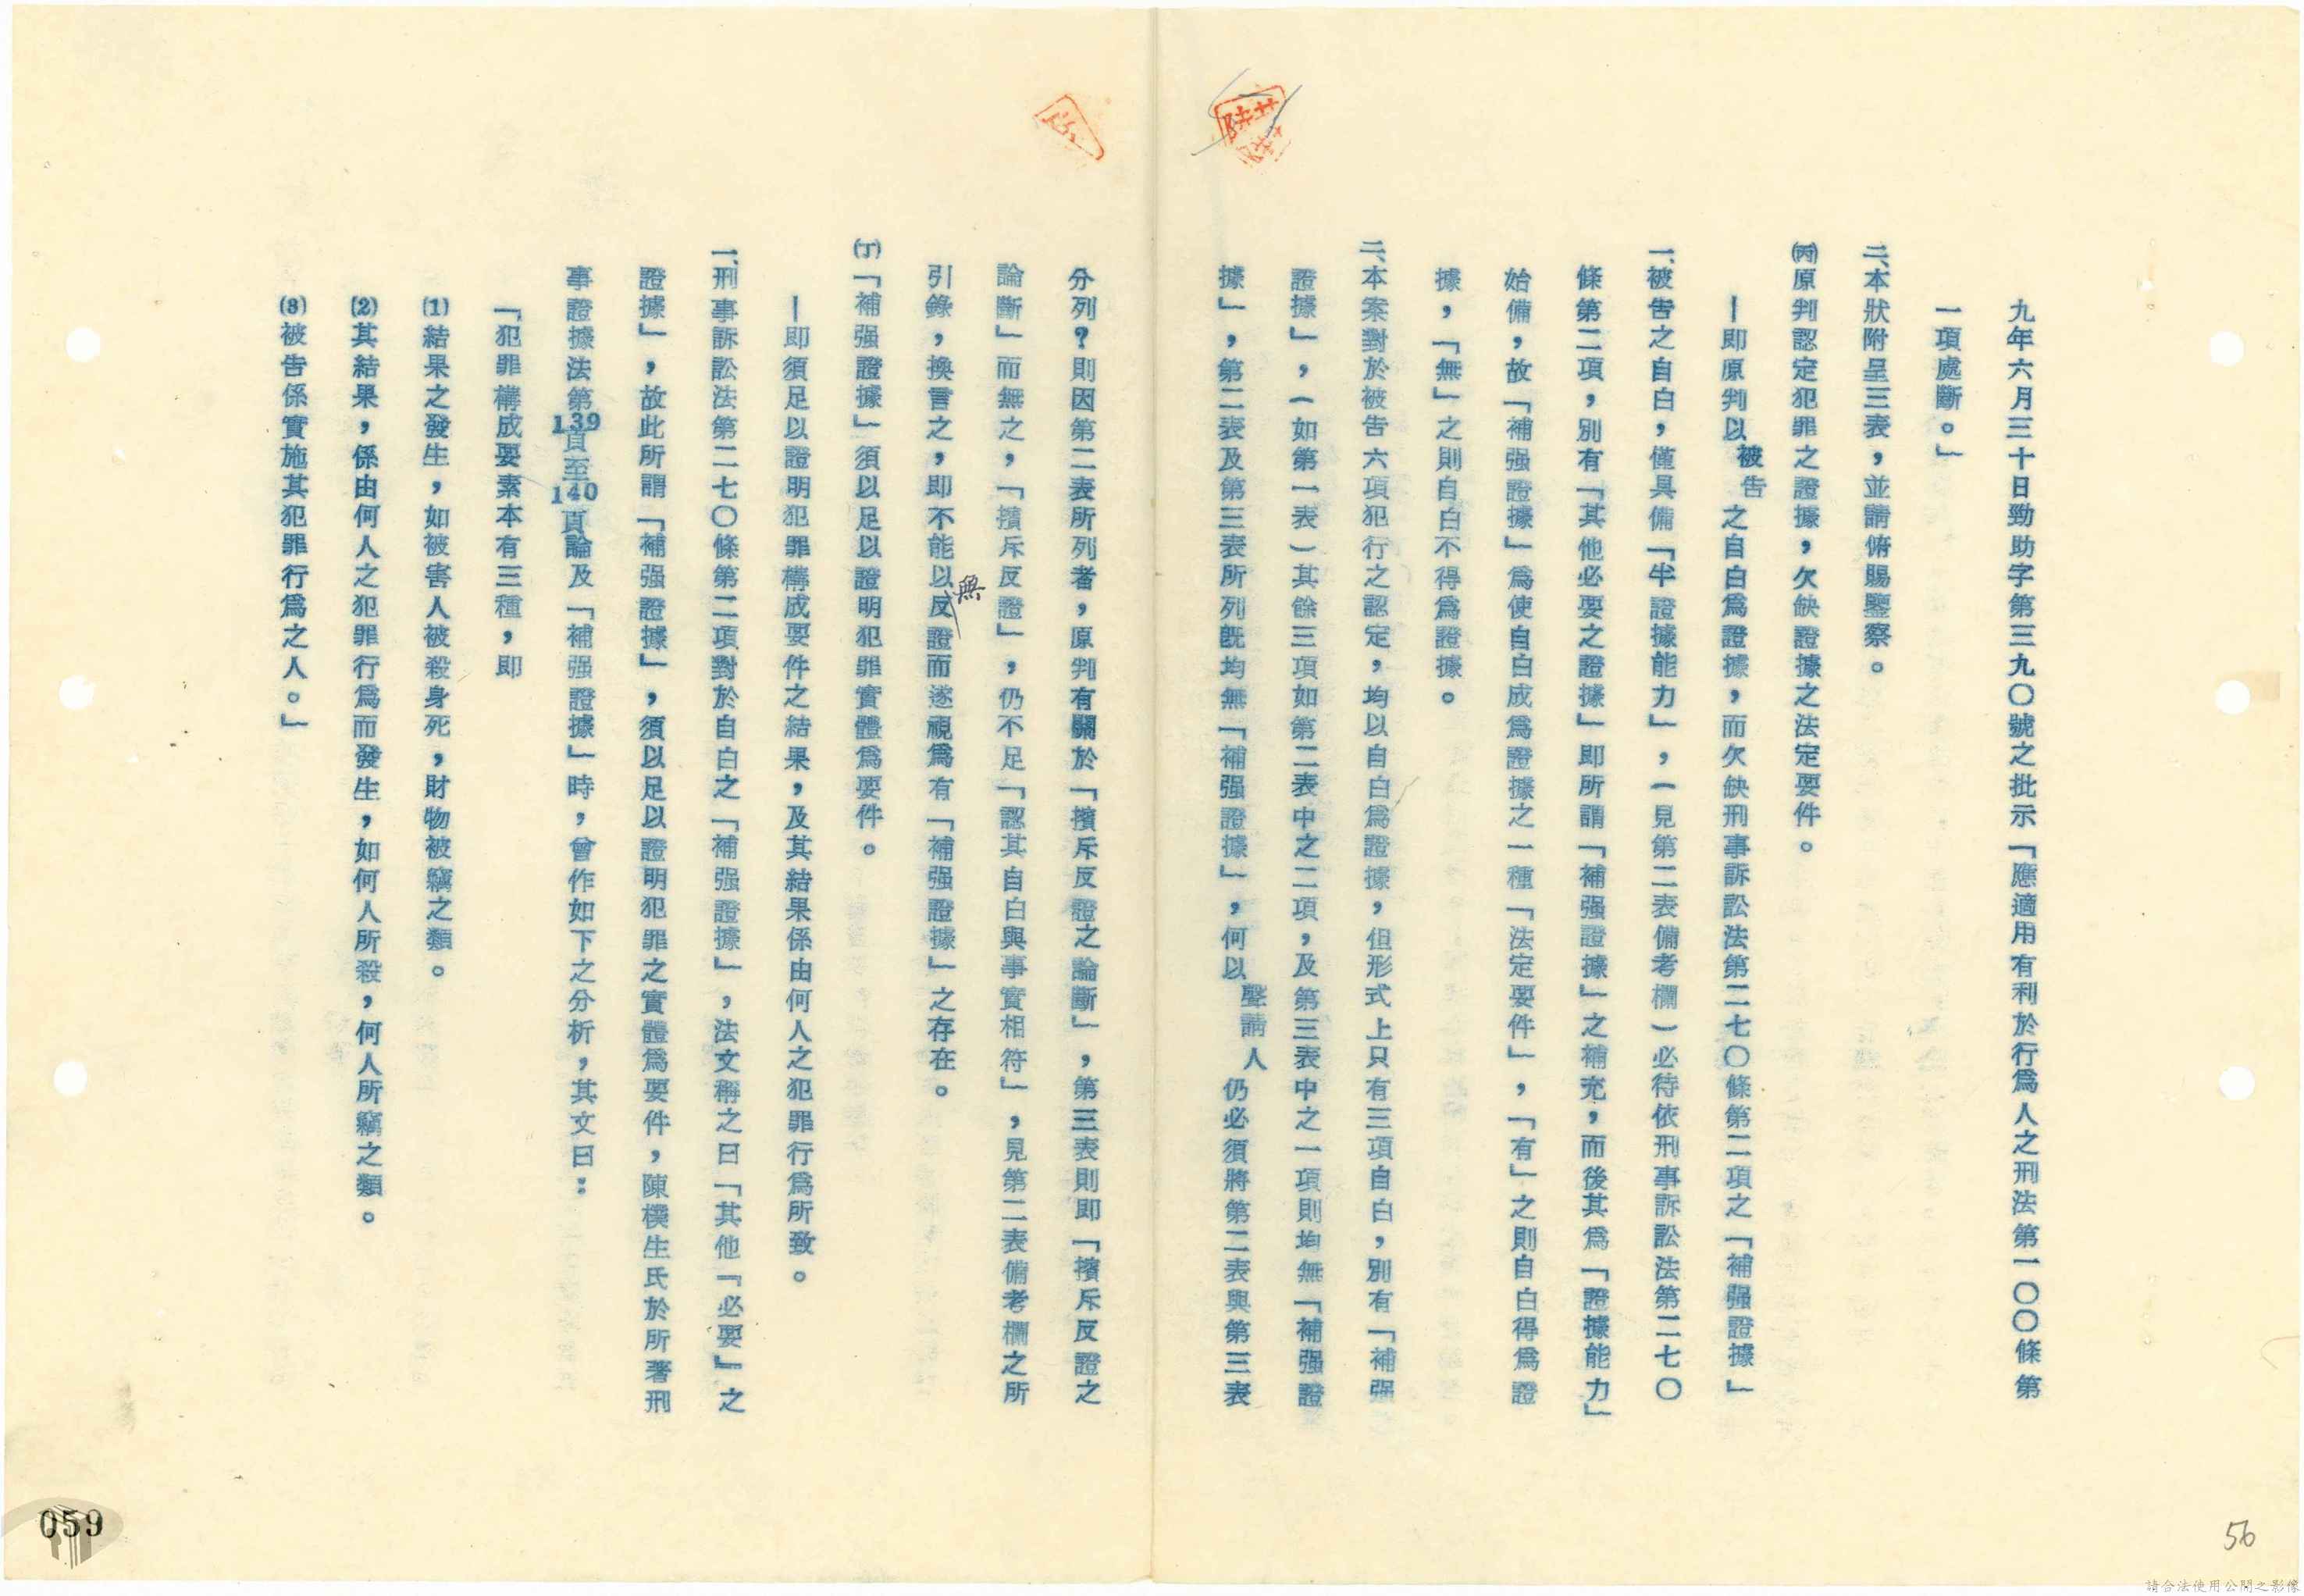 九年六月三十日勁助字第三九〇號之批示「應適用有利於行爲人之刑法第一〇〇條第
一項處斷。」
二、本狀附呈三表，並請俯賜鑒察。
㈣原判認定犯罪之證據，欠缺證據之法定要件。
—即原判以被告之自白爲證據，而欠缺刑事訴訟法第二七〇條第二項之「補强證據」
一、被告之自白，僅具備「半證據能力」，（見第二表備考欄）必待依刑事訴訟法第二七〇
條第二項，別有「其他必要之證據」即所謂「補强證據」之補充，而後其爲「證據能力」
始備，故「補强證據」爲使自白成爲證據之一種「法定要件」，「有」之則自白得爲證
據，「無」之則自白不得爲證據。
二、本案對於被告六項犯行之認定，均以自白爲證據，但形式上只有三項自白，別有「補强
證據」，（如第一表）其餘三項如第二表中之二項，及第三表中之一項則均無「補强證
據」，第二表及第三表所列旣均無「補强證據」，何以聲請人仍必須將第二表與第三表
分列？則因第二表所列者，原判有關於「擯斥反證之論斷」，第三表則即「擯斥反證之
論斷」而無之，「擯斥反證」，仍不足「認其自白與事實相符」，見第二表備考欄之所
引錄，換言之，即不能以無反證而遂視爲有「補强證據」之存在。
(丁)「補强證據」須以足以證明犯罪實體爲要件。
—即須足以證明犯罪構成要件之結果，及其結果係由何人之犯罪行爲所致。
一、刑事訴訟法第二七〇條第二項對於自白之「補强證據」，法文稱之曰「其他「必要」之
證據」，故此所謂「補强證據」，須以足以證明犯罪之實體爲要件，陳樸生氏於所著刑
事證據法第139頁至140頁論及「補强證據」時，曾作如下之分析，其文曰：
「犯罪構成要素本有三種，即
(1)結果之發生，如被害人被殺身死，財物被竊之類。
(2)其結果，係由何人之犯罪行爲而發生，如何人所殺，何人所竊之類。
(3)被告係實施其犯罪行爲之人。」
059
56
請合法使用公開之影像